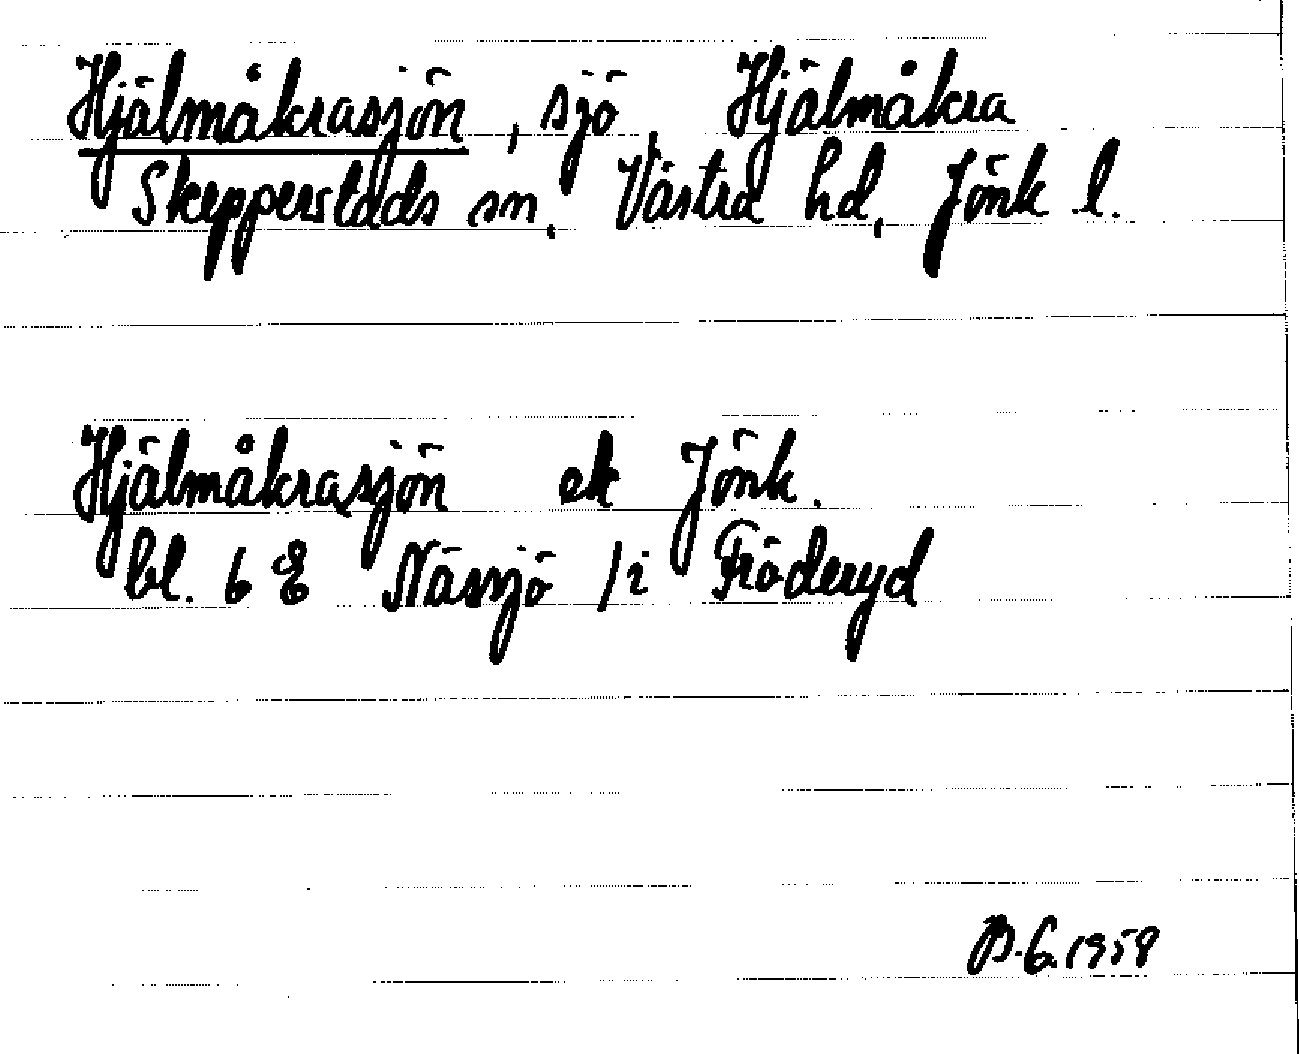 Hjälmåkrasjön, sjö, Hjälmåkra
Skepperstads sn, Västra hd, Jönk l.
Hjälmåkrasjön ek Jönk.
bl. 6 E Nässjö /i Fröderyd
B.G. 1958